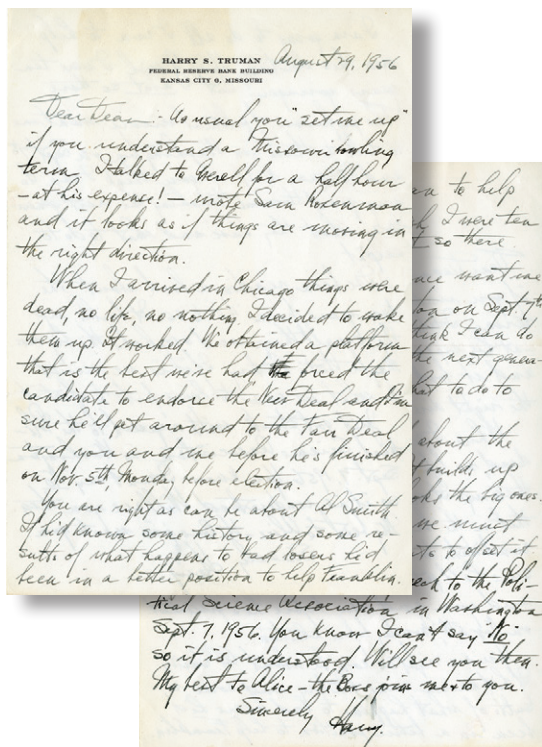 HARRY S. TRUMAN
FEDERAL RESERVE BANK BUILDING
KANSAS CITY 6, MISSOURI
August 29, 1956
Dear Dean:- As usual you "set me up"
if you understand a Missouri bowling
term. I talked to Averell for a half hour
- at his expense! - wrote Sam Rosenman
and it looks as if things are moving in
the right direction.
When I arrived in Chicago things were
dead, no life, no nothing. I decided to wake
them up. It worked. We obtained a platform
that is the best we've had forced the
candidate to endorse the New Deal and I'm
sure he'll get around to the Fair Deal
and you and me before he's finished
on Nov. 5th, Monday before election.
You are right as can be about Al Smith.
If he'd known some history and some re-
sults of what happens to bad losers he'd
been in a better position to help Franklin.
to help
I were ten
so there
want me
on Sept. 7th
think I can do
the next genera-
to do to
about the
builds up
the big ones.
we must
to offset it.
to the Poli-
tical Science Association in Washington
Sept. 7, 1956. You know I can't say No
so it is understood. Will see you then.
My best to Alice - the Boss joins me to you.
Sincerely
Harry.